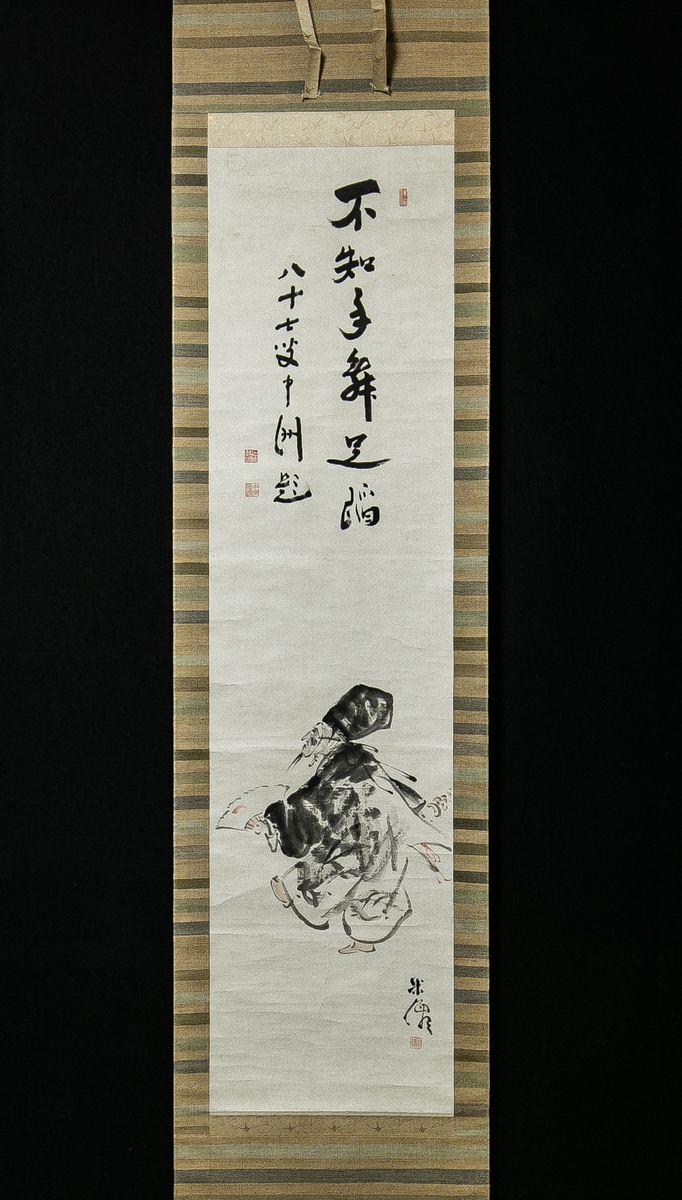 不知手舞足蹈
八十七叟中洲題
米僊